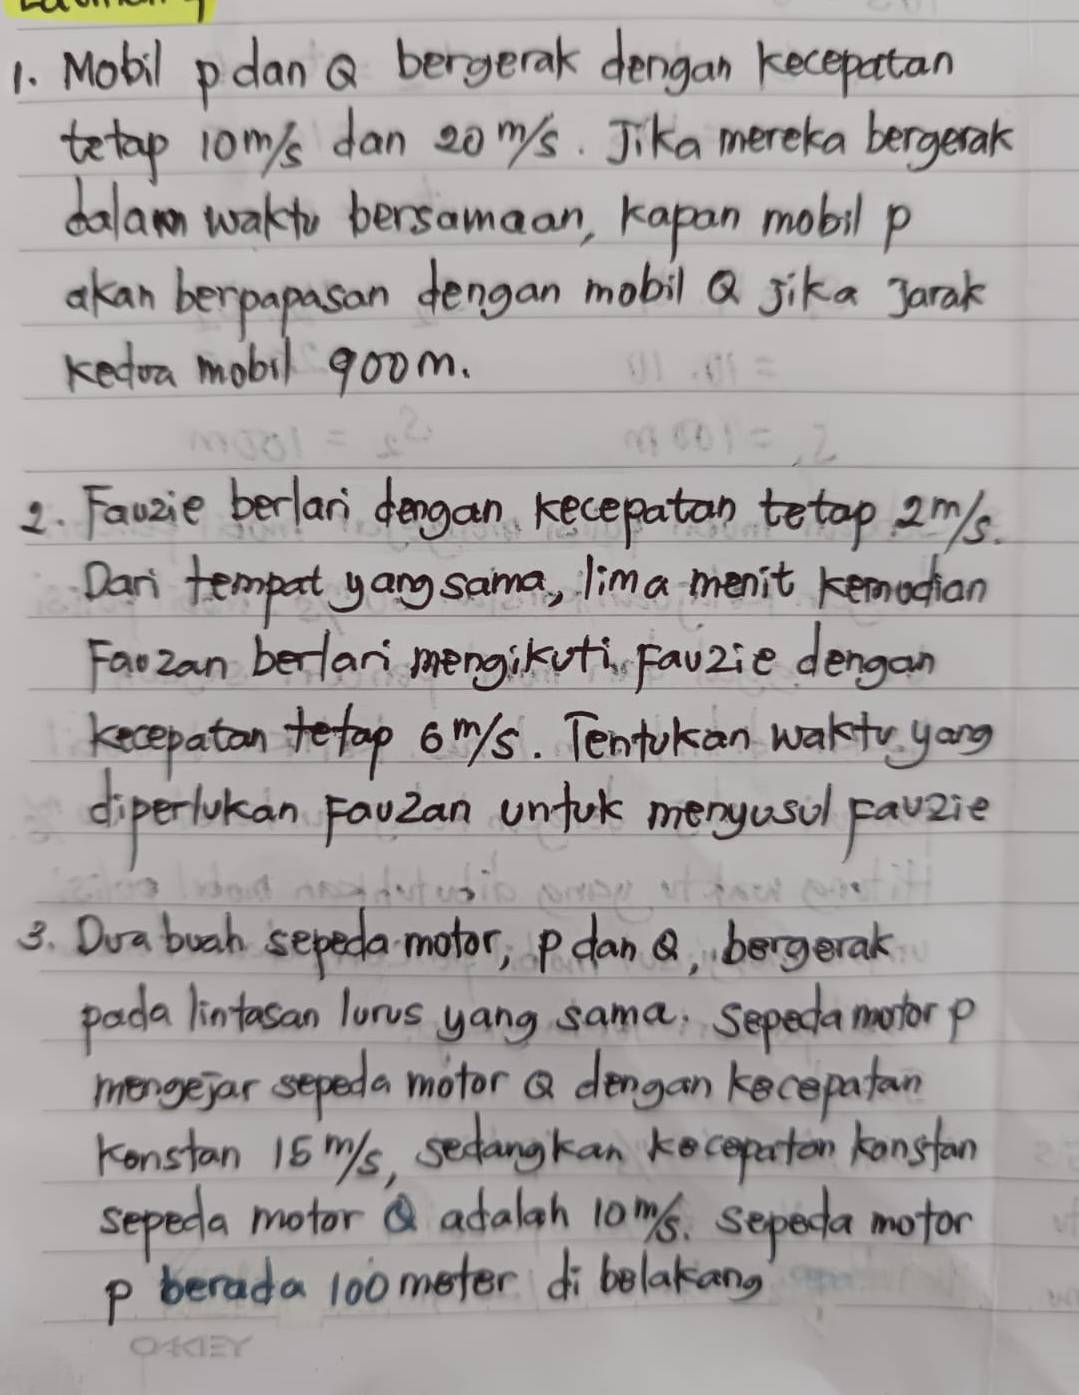 1. Mobil p dan Q bergerak dengan kecepatan
tetap 10 m/s dan 20 m/s. Jika mereka bergerak
dalam waktu bersamaan, kapan mobil p
akan berpapasan dengan mobil Q jika Jarak
kedua mobil 900 m.
= 10 . 10
S₁ = 100 m S₂ = 100 m
2. Fauzie berlari dengan kecepatan tetap 2 m/s.
Dari tempat yang sama, lima menit kemudian
Fauzan berlari mengikuti Fauzie dengan
kecepatan tetap 6 m/s. Tentukan waktu yang
diperlukan Fauzan untuk menyusul Fauzie
3. Dua buah sepeda motor, p dan Q, bergerak
pada lintasan lurus yang sama. Sepeda motor p
mengejar sepeda motor Q dengan kecepatan
konstan 15 m/s, sedangkan kecepatan konstan
sepeda motor Q adalah 10 m/s. Sepeda motor
p berada 100 meter di belakang